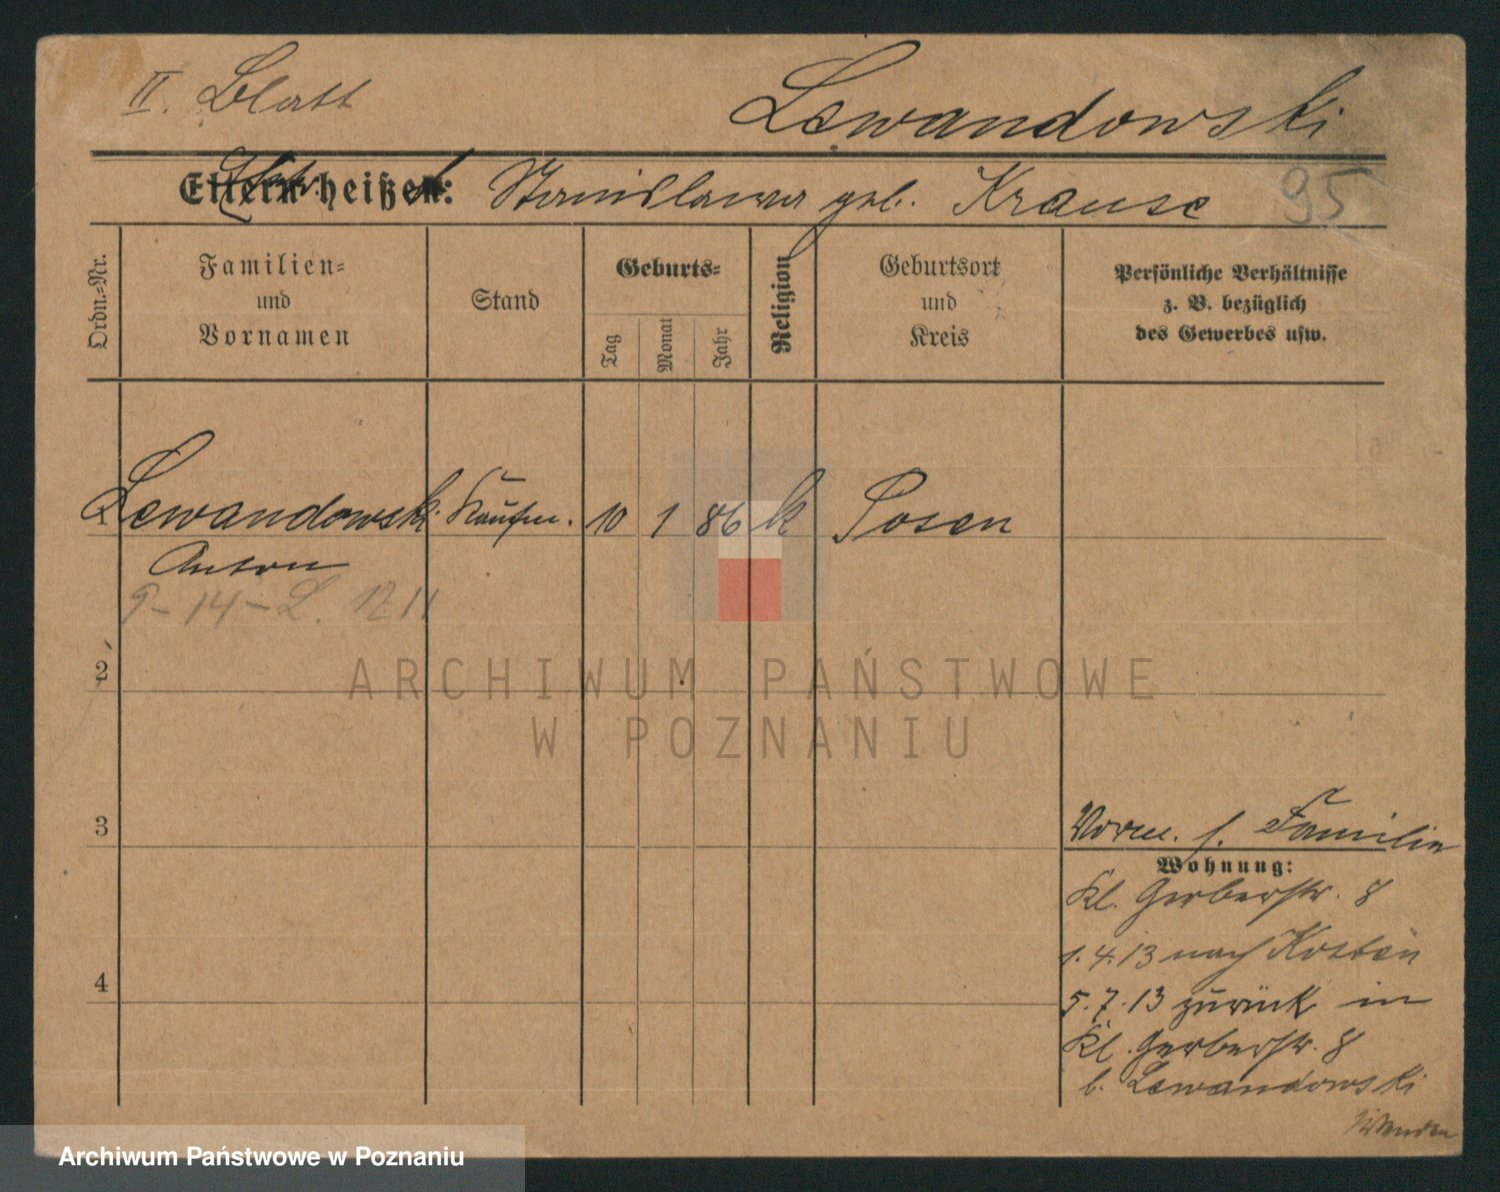 II. Blatt
Lewandowski
Eltern heißen: Stanislawa geb. Krause
95
Ordn.-Nr.
Familien-
und
Vornamen
Stand
Geburts-
Tag
Monat
Jahr
Religion
Geburtsort
und
Kreis
Persönliche Verhältnisse
z. B. bezüglich
des Gewerbes usw.
1 Lewandowski Kaufm. 10 1 86 k Posen
Anton
9-14-L. 1211
2
3
4
ARCHIWUM PAŃSTWOWE
W POZNANIU
Vorm. s. Familie
Wohnung:
Kl. Gerberstr. 8
1.4.13 nach Kosten
5.7.13 zurück in
Kl. Gerberstr. 8
b. Lewandowski
Wenden
Archiwum Państwowe w Poznaniu